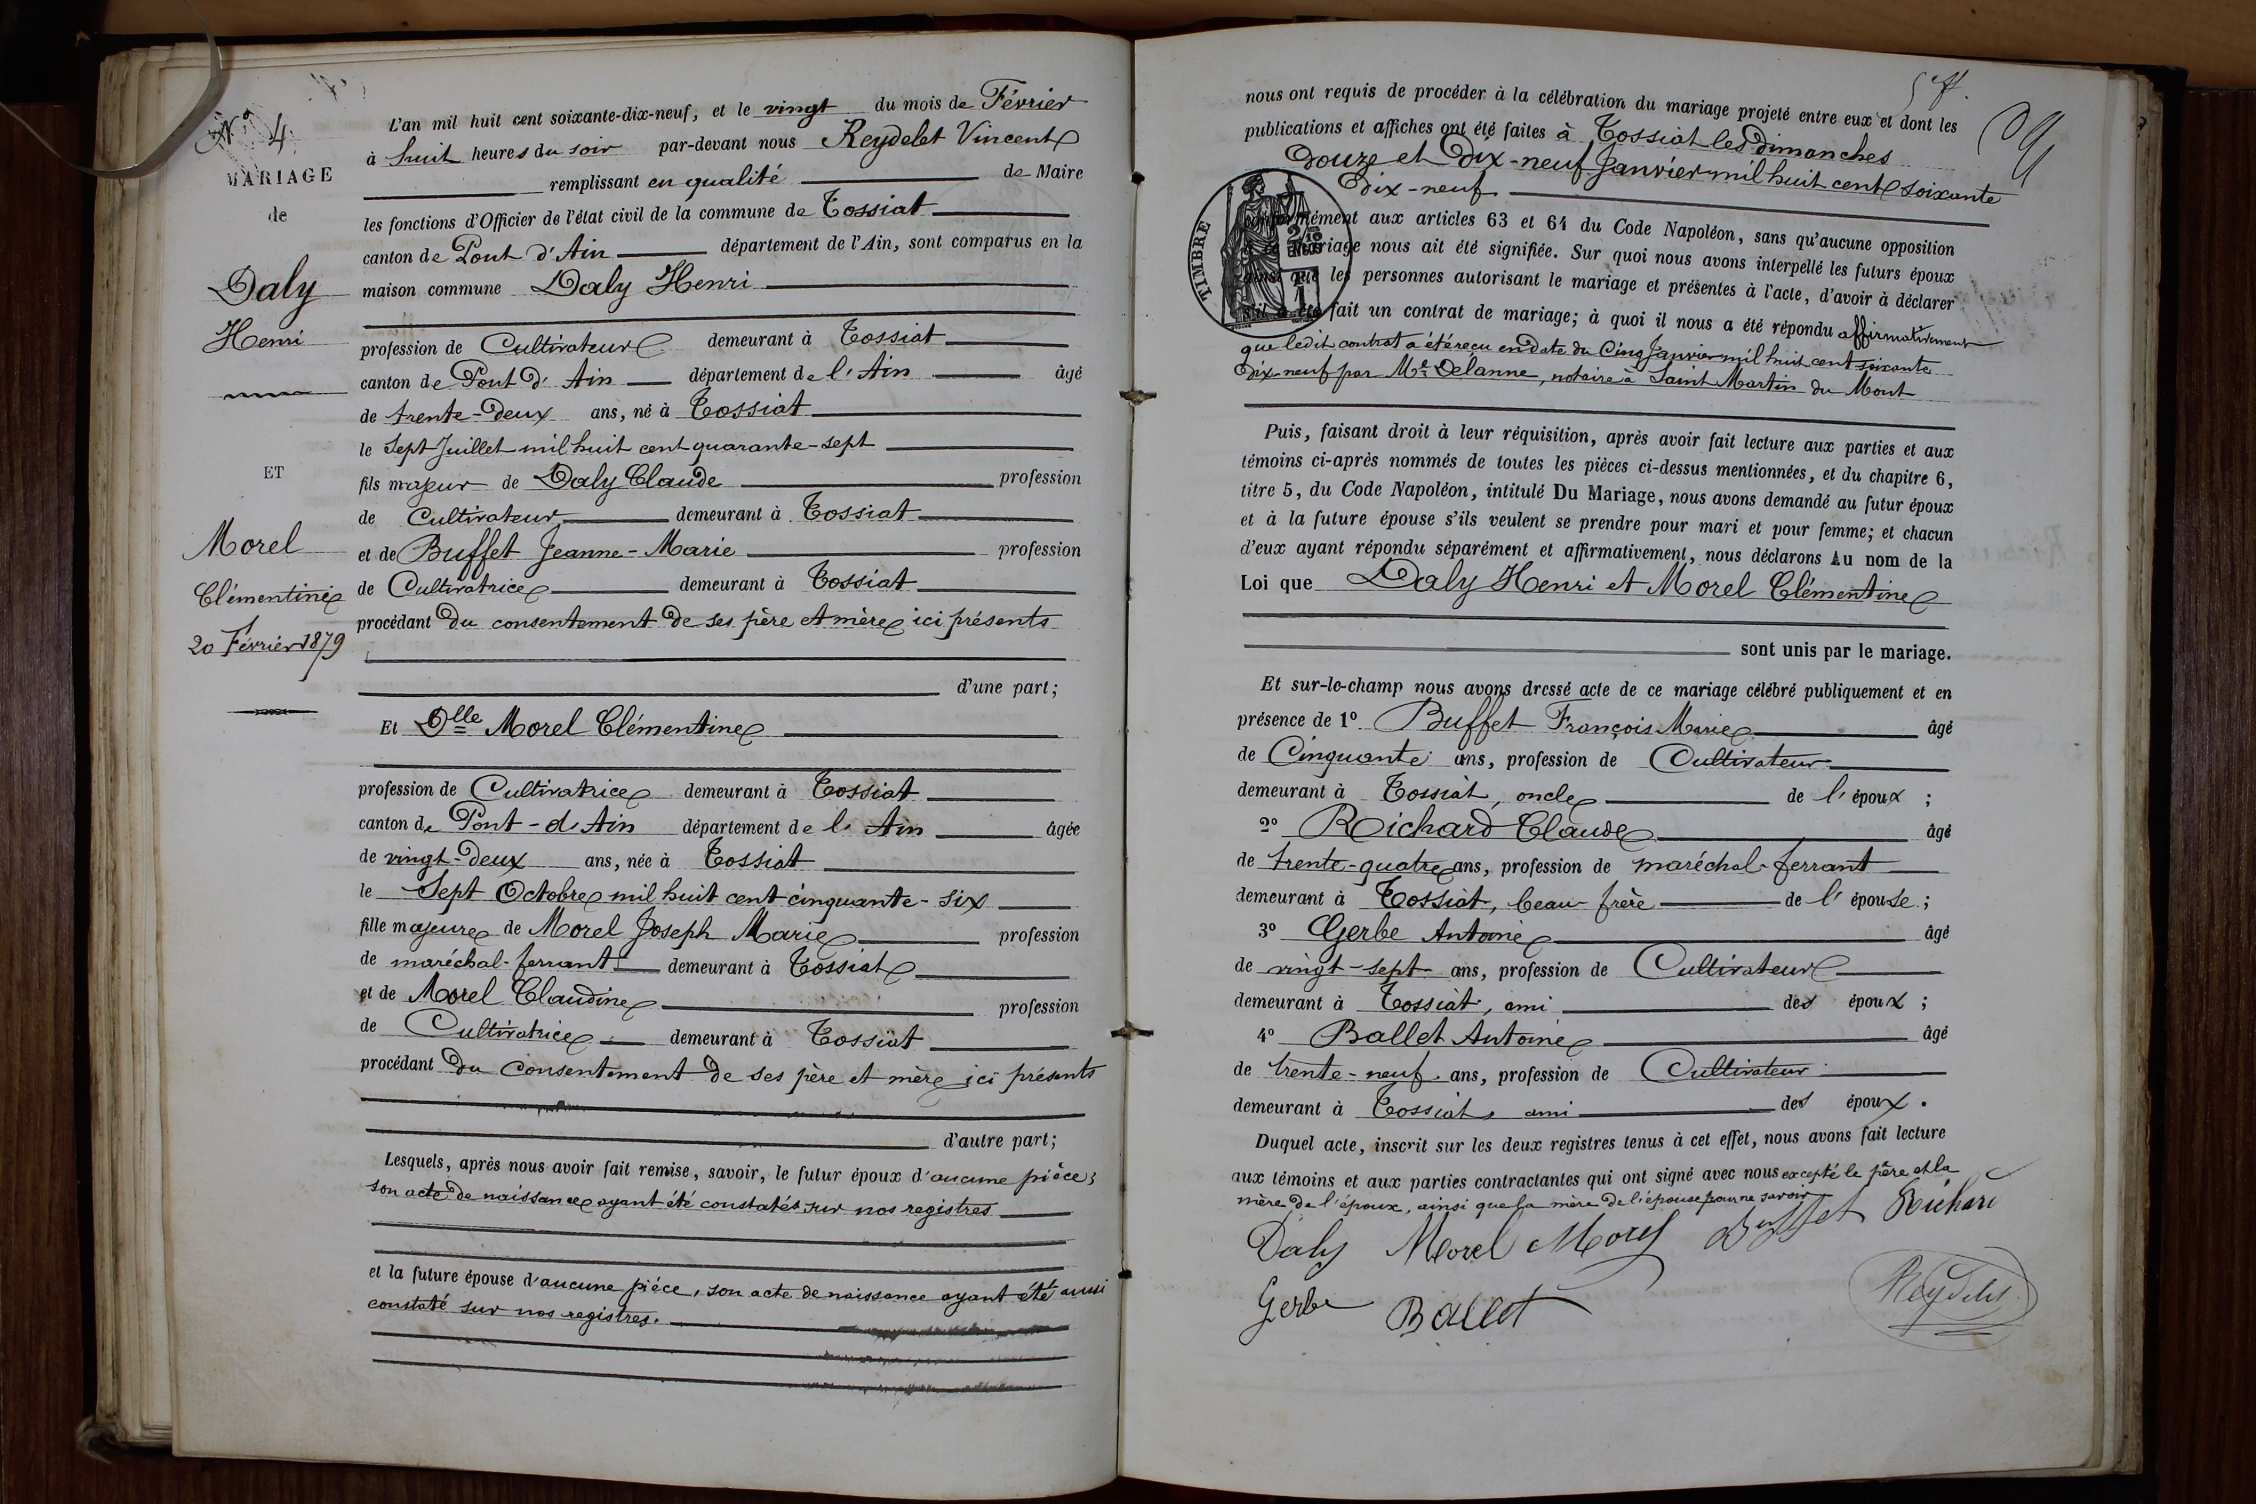 N° 4
MARIAGE
de
Daly
Henri
ET
Morel
Clémentine
20 Février 1879
L'an mil huit cent soixante-dix-neuf, et le vingt du mois de Février
à huit heures du soir par-devant nous Reydelet Vincent
remplissant en qualité de Maire
les fonctions d'Officier de l'état civil de la commune de Tossiat
canton de Pont d'Ain département de l'Ain, sont comparus en la
maison commune Daly Henri
profession de Cultivateur demeurant à Tossiat
canton de Pont d'Ain département de l'Ain âgé
de trente-deux ans, né à Tossiat
le Sept Juillet mil huit cent quarante-sept
fils majeur de Daly Claude profession
de Cultivateur demeurant à Tossiat
et de Buffet Jeanne-Marie profession
de Cultivatrice demeurant à Tossiat
procédant du consentement de ses père et mère ici présents
d'une part;
Et Dlle Morel Clémentine
profession de Cultivatrice demeurant à Tossiat
canton de Pont-d'Ain département de l'Ain âgée
de vingt-deux ans, née à Tossiat
le Sept Octobre mil huit cent cinquante-six
fille majeure de Morel Joseph Marie profession
de maréchal-ferrant demeurant à Tossiat
et de Morel Claudine profession
de Cultivatrice demeurant à Tossiat
procédant du consentement de ses père et mère ici présents
d'autre part;
Lesquels, après nous avoir fait remise, savoir, le futur époux d'aucune pièce;
son acte de naissance ayant été constatés sur nos registres
et la future épouse d'aucune pièce, son acte de naissance ayant été aussi
constaté sur nos registres.
nous ont requis de procéder à la célébration du mariage projeté entre eux et dont les
publications et affiches ont été faites à Tossiat les dimanches
douze et dix-neuf Janvier mil huit cent soixante
dix-neuf
TIMBRE
conformément aux articles 63 et 64 du Code Napoléon, sans qu'aucune opposition
mariage nous ait été signifiée. Sur quoi nous avons interpellé les futurs époux
ainsi que les personnes autorisant le mariage et présentes à l'acte, d'avoir à déclarer
s'il a été fait un contrat de mariage; à quoi il nous a été répondu affirmativement
que ledit contrat a été reçu en date du Cinq Janvier mil huit cent soixante
dix-neuf par Me Delanne, notaire à Saint Martin du Mont
Puis, faisant droit à leur réquisition, après avoir fait lecture aux parties et aux
témoins ci-après nommés de toutes les pièces ci-dessus mentionnées, et du chapitre 6,
titre 5, du Code Napoléon, intitulé Du Mariage, nous avons demandé au futur époux
et à la future épouse s'ils veulent se prendre pour mari et pour femme; et chacun
d'eux ayant répondu séparément et affirmativement, nous déclarons Au nom de la
Loi que Daly Henri et Morel Clémentine
sont unis par le mariage.
Et sur-le-champ nous avons dressé acte de ce mariage célébré publiquement et en
présence de 1° Buffet François Marie âgé
de Cinquante ans, profession de Cultivateur
demeurant à Tossiat, oncle de l'époux ;
2° Richard Claude âgé
de trente-quatre ans, profession de maréchal-ferrant
demeurant à Tossiat, beau-frère de l'épouse ;
3° Gerbe Antoine âgé
de vingt-sept ans, profession de Cultivateur
demeurant à Tossiat, ami des époux ;
4° Ballet Antoine âgé
de trente-neuf ans, profession de Cultivateur
demeurant à Tossiat, ami des époux.
Duquel acte, inscrit sur les deux registres tenus à cet effet, nous avons fait lecture
aux témoins et aux parties contractantes qui ont signé avec nous excepté le père et la
mère de l'époux, ainsi que la mère de l'épouse pour ne savoir
Daly Morel Morel Buffet Richard
Gerbe Ballet Reydelet